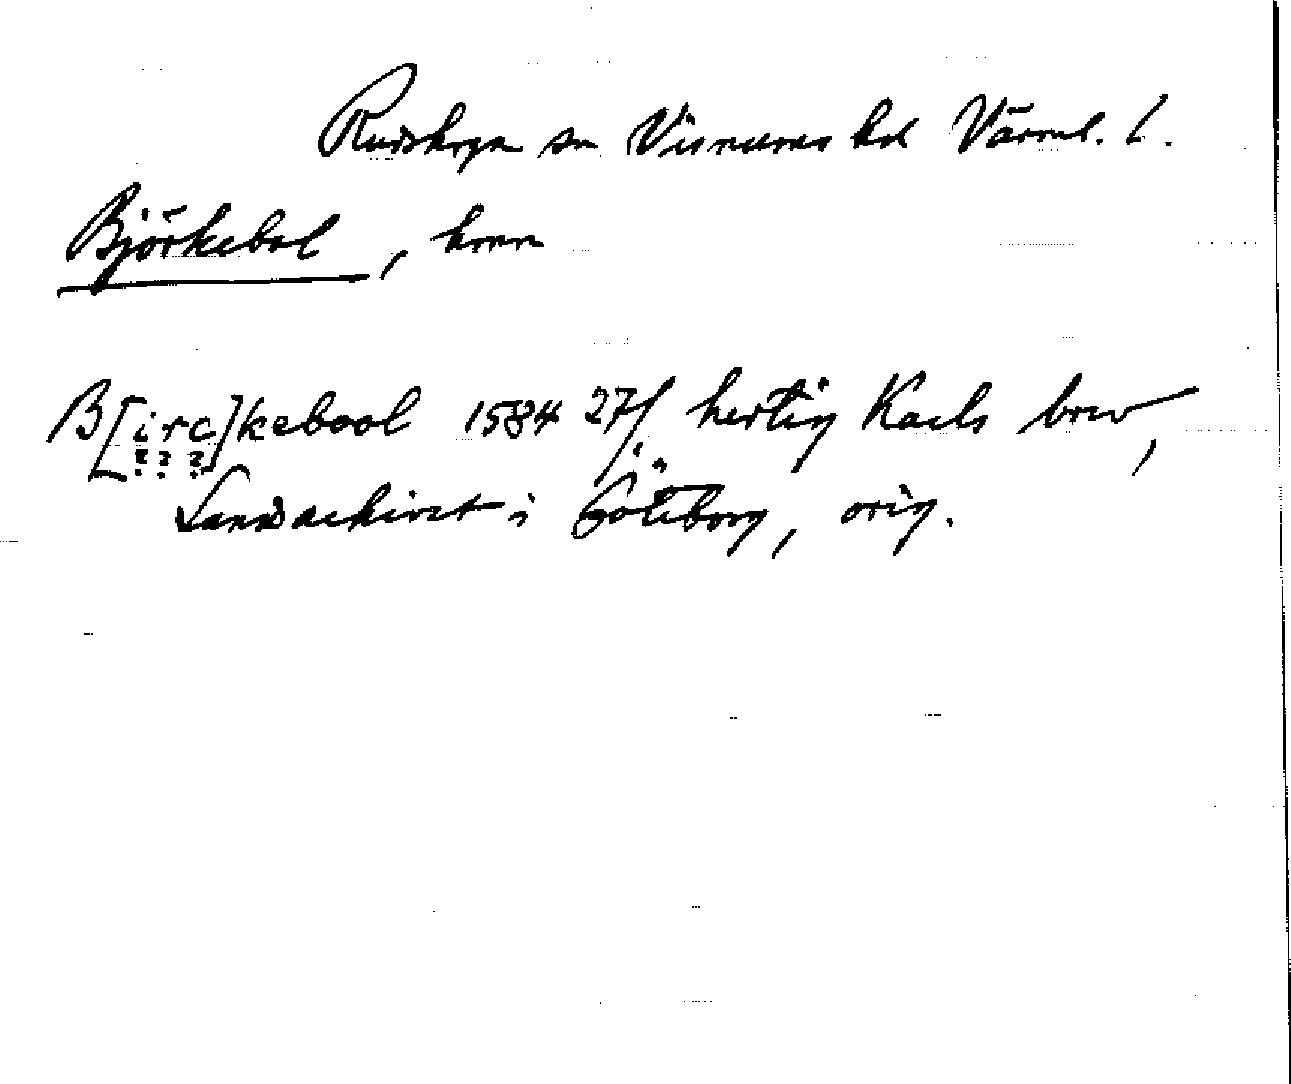 Rudskoga sn Visnums hd Värml. l.
Björkebol, hmn
B[irc]kebool 1584 27/ hertig Karls brev,
? ? ?
Landsarkivet i Göteborg, orig.